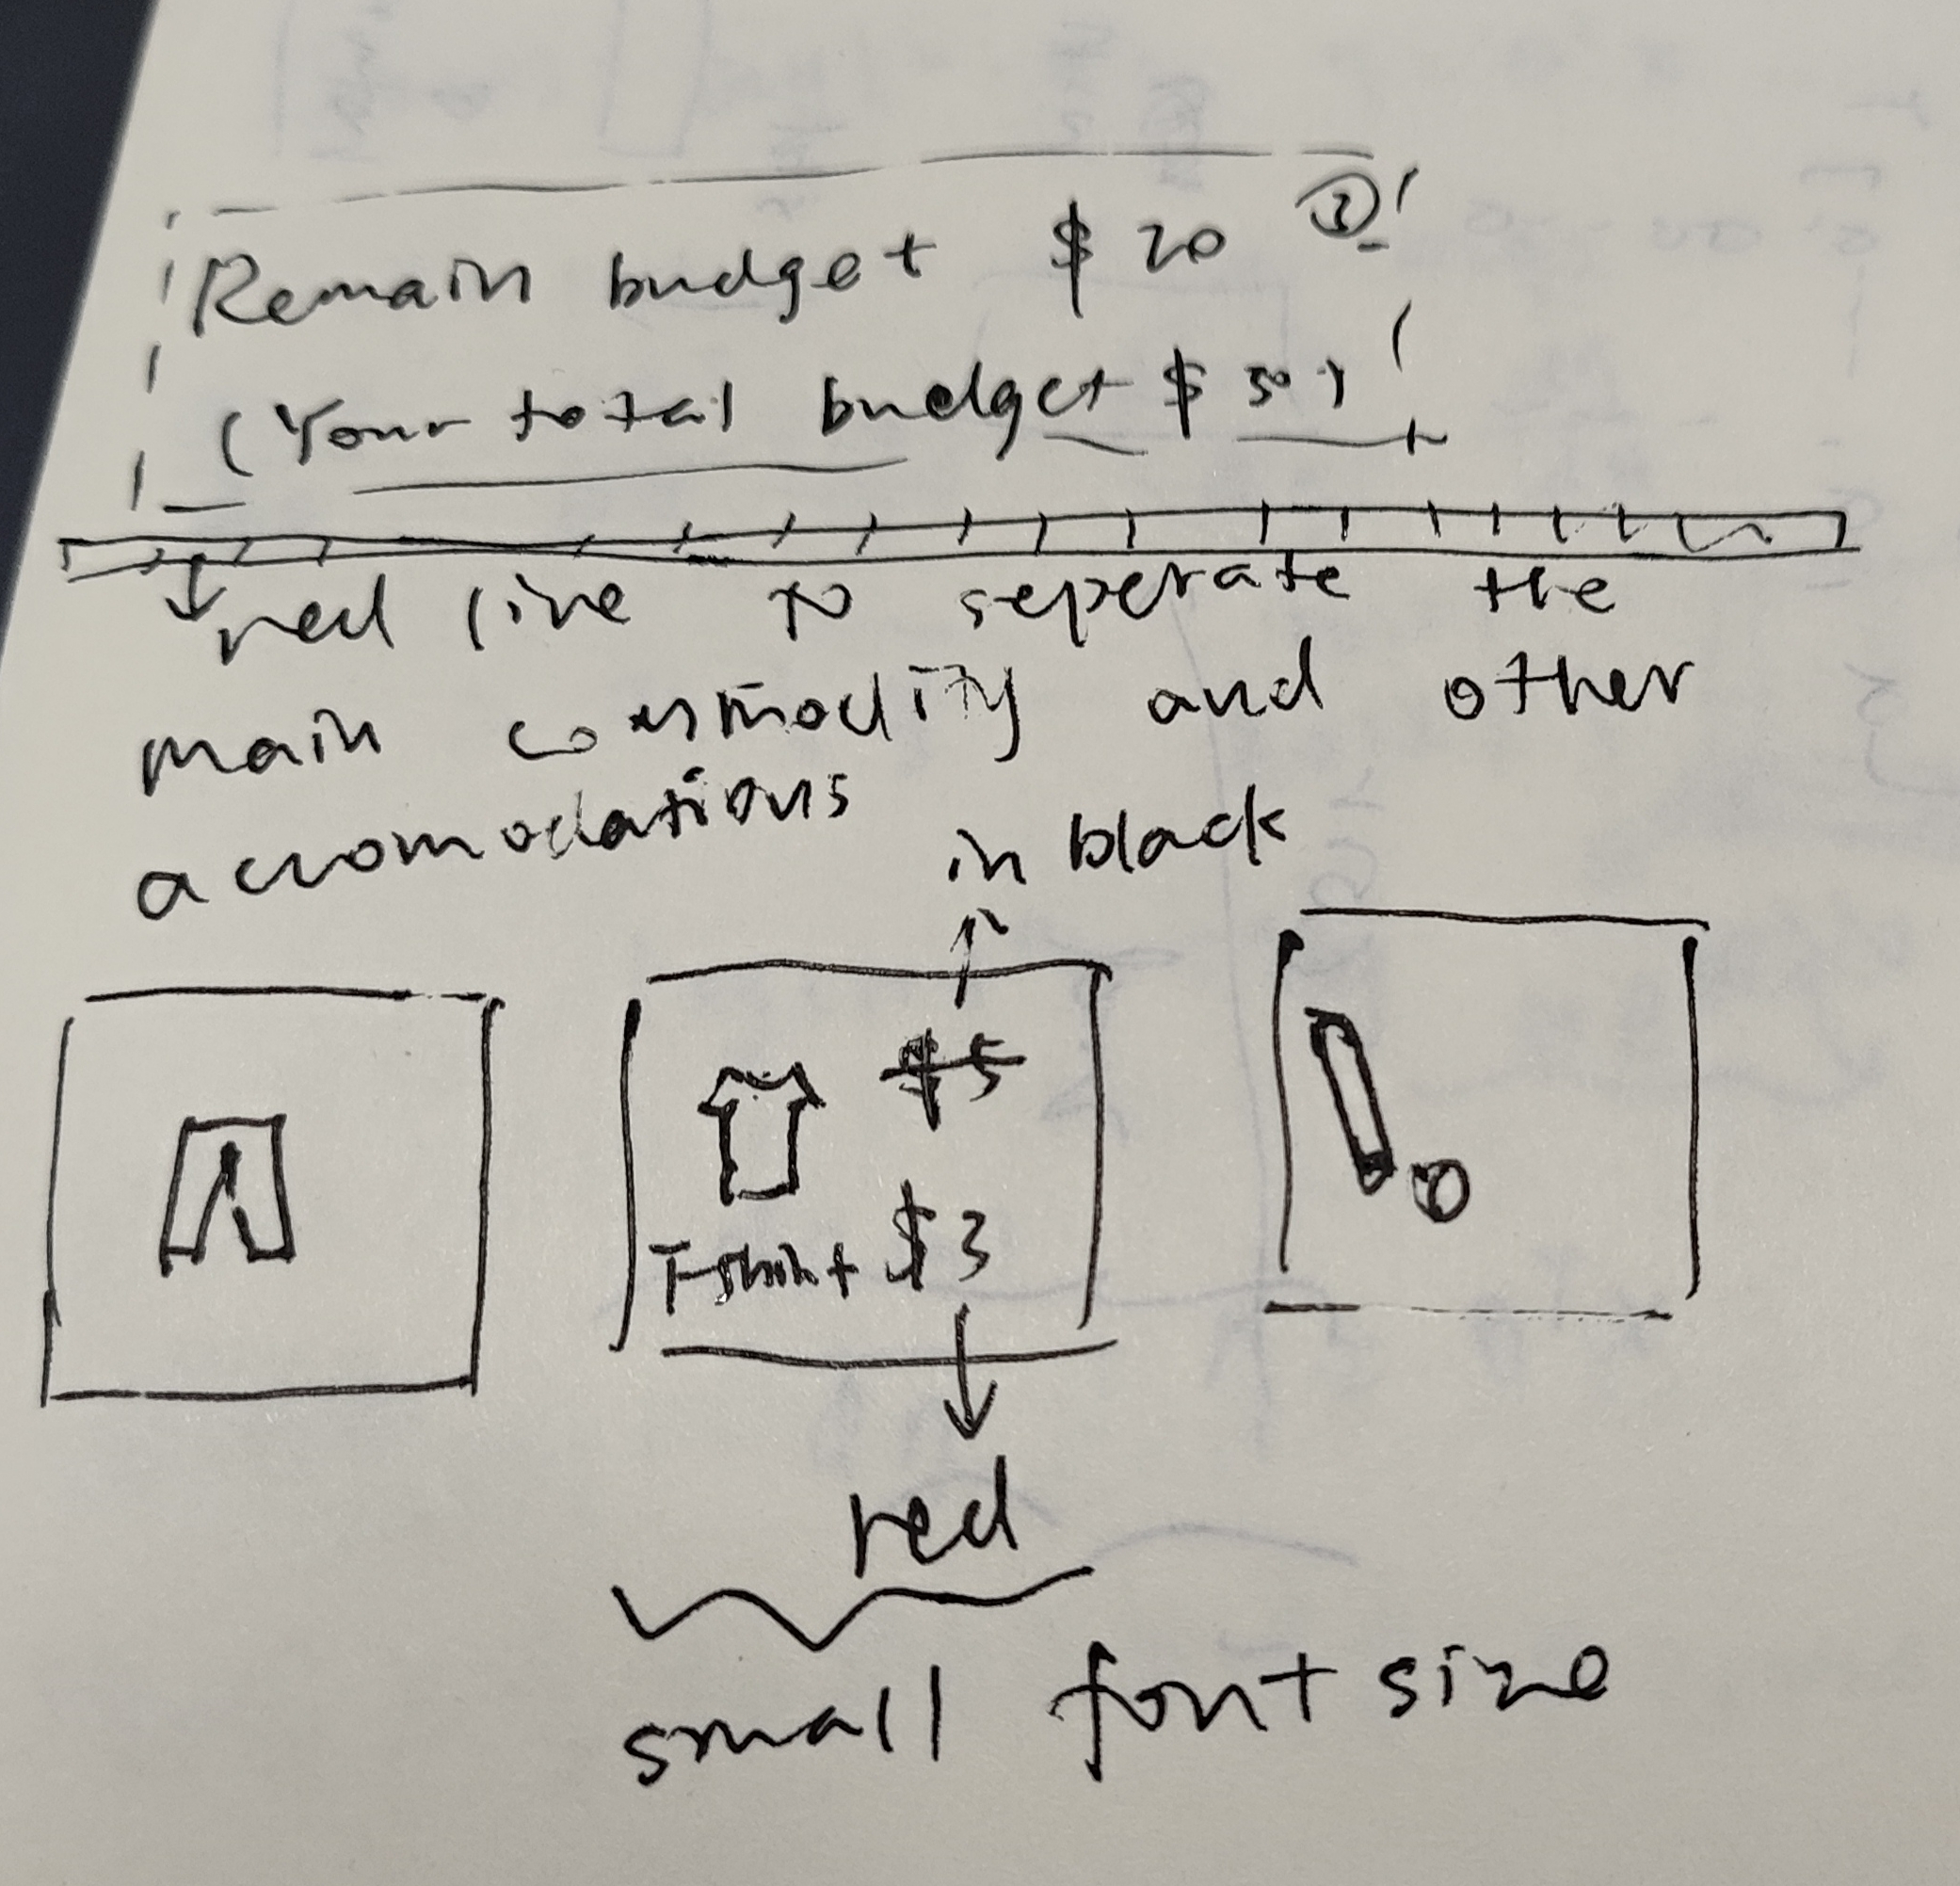 Remain budget $20
(Your total budget $50)
red line to seperate the
main commodity and other
accomodations
in black
$5
T-shirt $3
red
small font size